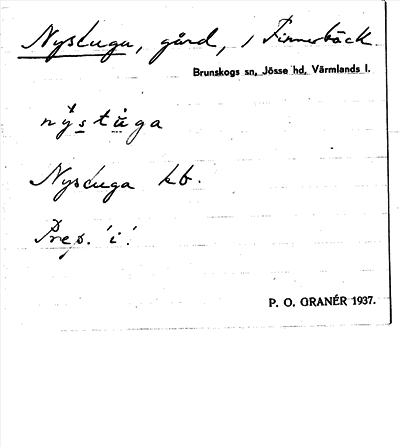 Nystuga, gård, i Finnerbäck
Brunskogs sn, Jösse hd, Värmlands l.
nystuga
Nystuga kb.
Prep. 'i'.
P. O. GRANÉR 1937.